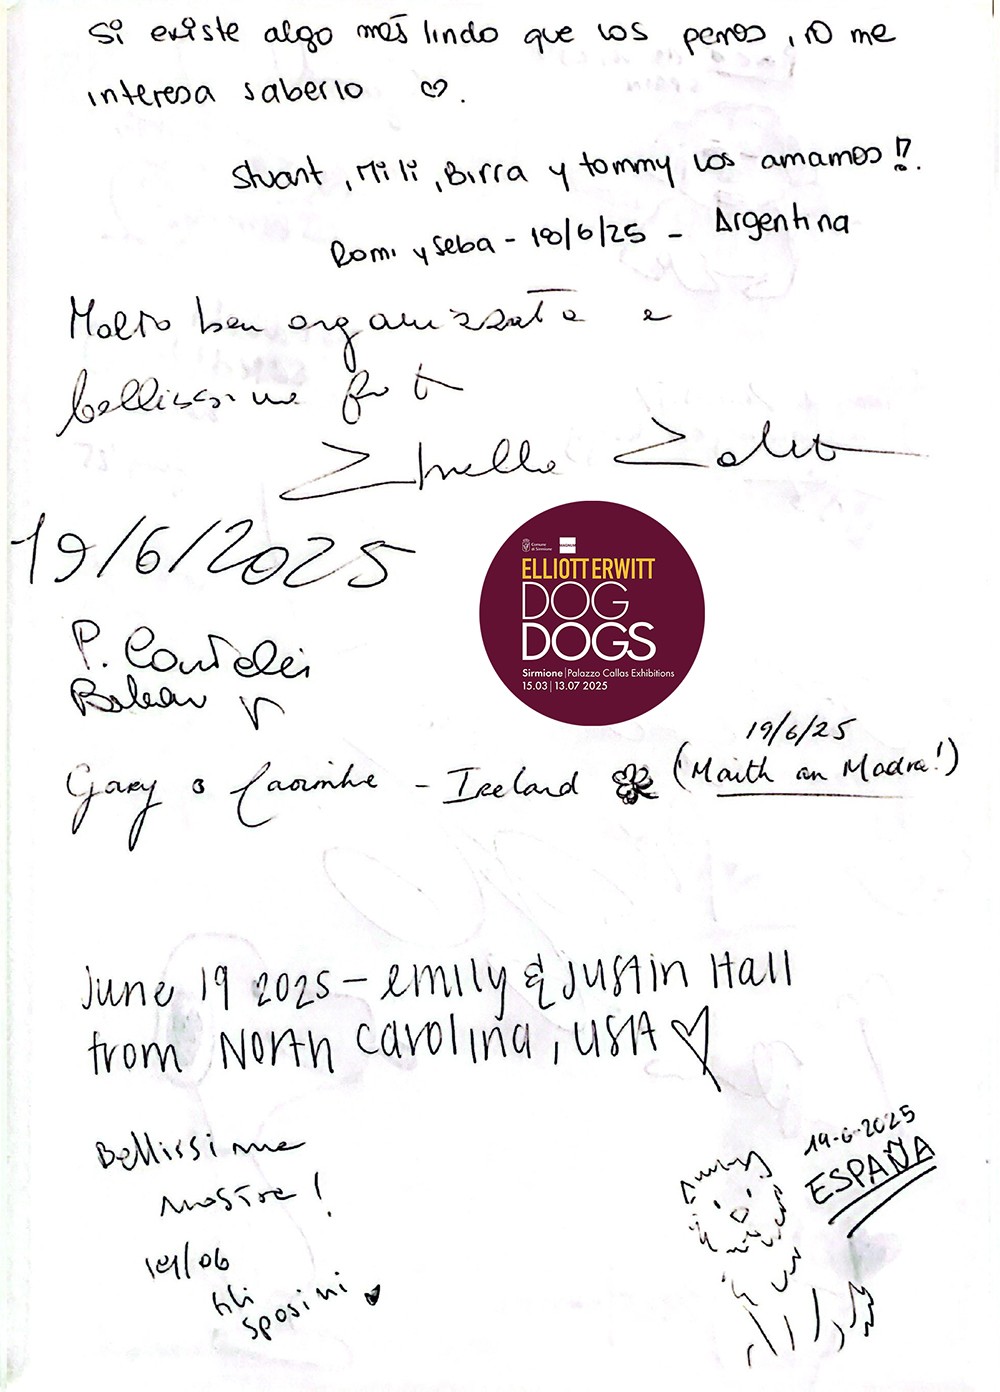 Si existe algo más lindo que los perros, no me
interesa saberlo ♡.
Stuart, Mili, Birra y tommy los amamos!!.
Romi y Seba - 18/6/25 - Argentina
Molto ben organizzata e
bellissime foto
19/6/2025
Comune
di Sirmione
MAGNUM
ELLIOTT ERWITT
DOG
DOGS
Sirmione | Palazzo Callas Exhibitions
15.03 | 13.07 2025
P.
19/6/25
Gary & Caoimhe - Ireland (Maith an Madra!)
June 19 2025 - emily & Justin Hall
from North Carolina, USA ♡
19-6-2025
ESPAÑA
Bellissima
mostra!
19/06
sposini